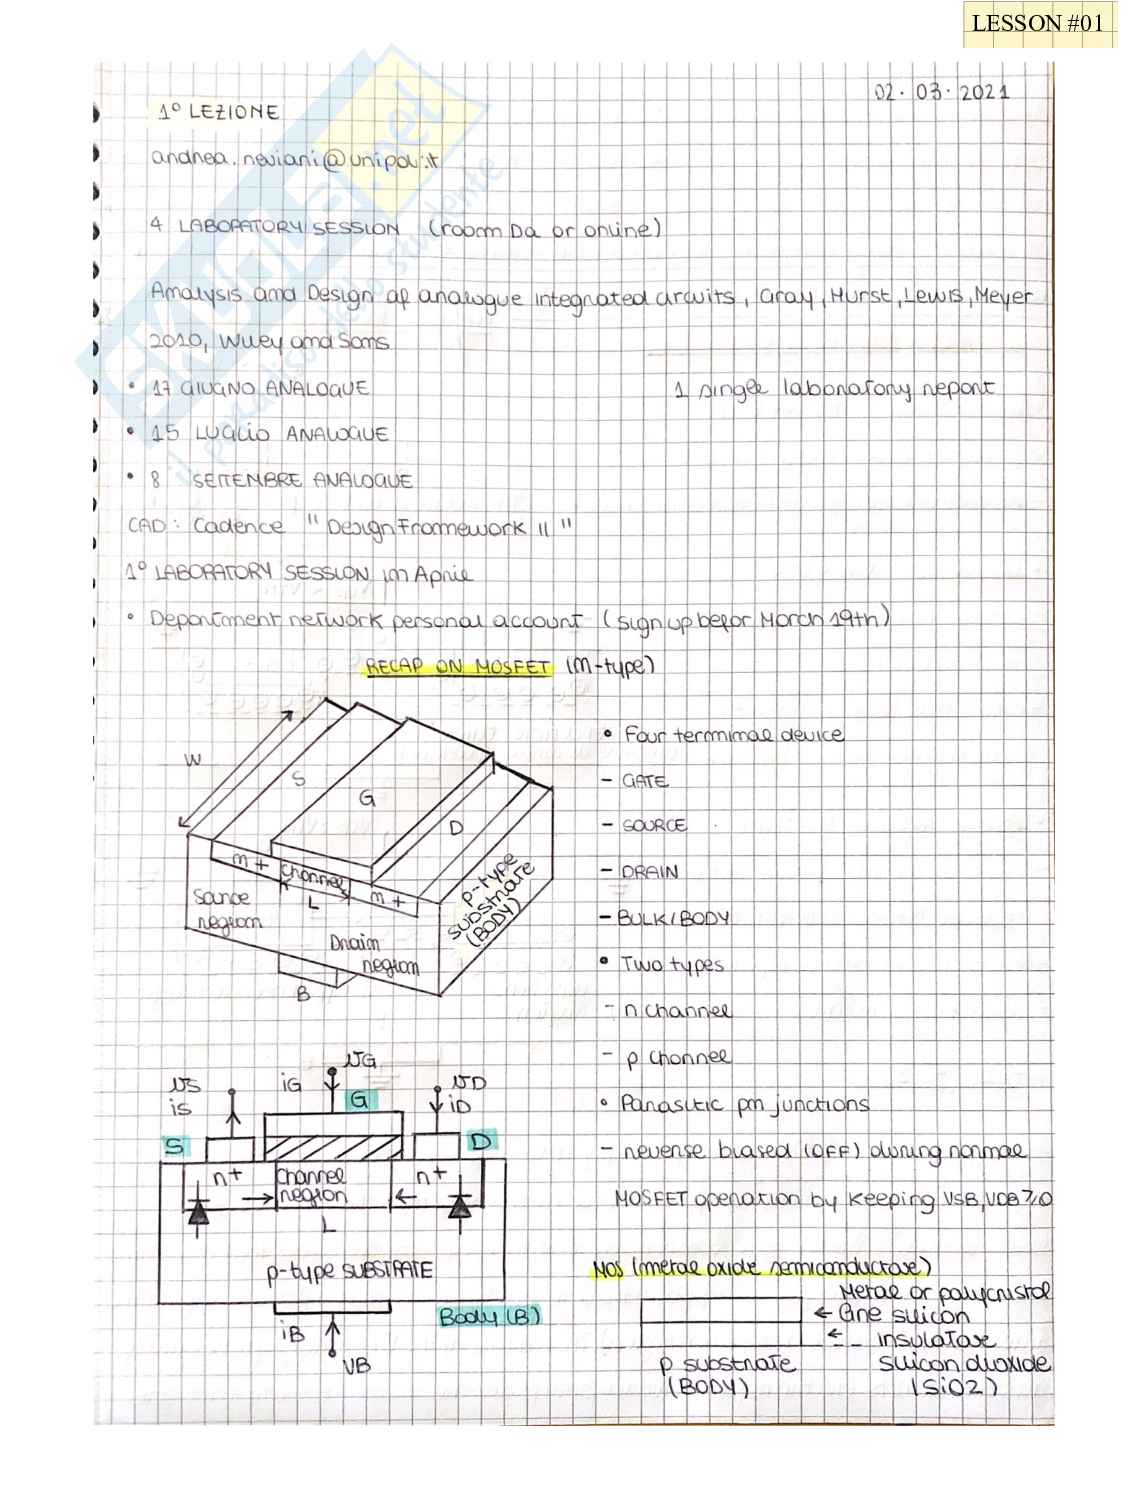 LESSON #01
02.03.2021
1° LEZIONE
andrea.neviani@unipd.it
4 LABORATORY SESSION (room Da or online)
Analysis and Design of analogue integrated circuits, Gray, Hurst, Lewis, Meyer
2010, Wiley and Sons
• 17 GIUGNO ANALOGUE
1 single laboratory report
• 15 LUGLIO ANALOGUE
• 8 SETTEMBRE ANALOGUE
CAD: Cadence "Design Framework II"
1° LABORATORY SESSION in April
• Department network personal account (sign up befor March 19th)
RECAP ON MOSFET (n-type)
W
S
G
D
n+
channel
n+
L
Source
region
Drain
region
p-type
substrate
(BODY)
B
• Four terminal device
- GATE
- SOURCE
- DRAIN
- BULK/BODY
• Two types
- n channel
- p channel
• Parasitic pn junctions
- reverse biased (OFF) during normal
MOSFET operation by keeping VSB, VDB ≥ 0
vS
iS
iG
vG
G
vD
iD
S
D
n+
Channel
region
n+
L
p-type SUBSTRATE
Body (B)
iB
VB
MOS (metal oxide semiconductor)
Metal or polycristal
← line silicon
← -- insulator
p substrate
(BODY)
silicon dioxide
(SiO2)
SKUOLA.net
il paradiso dello studente